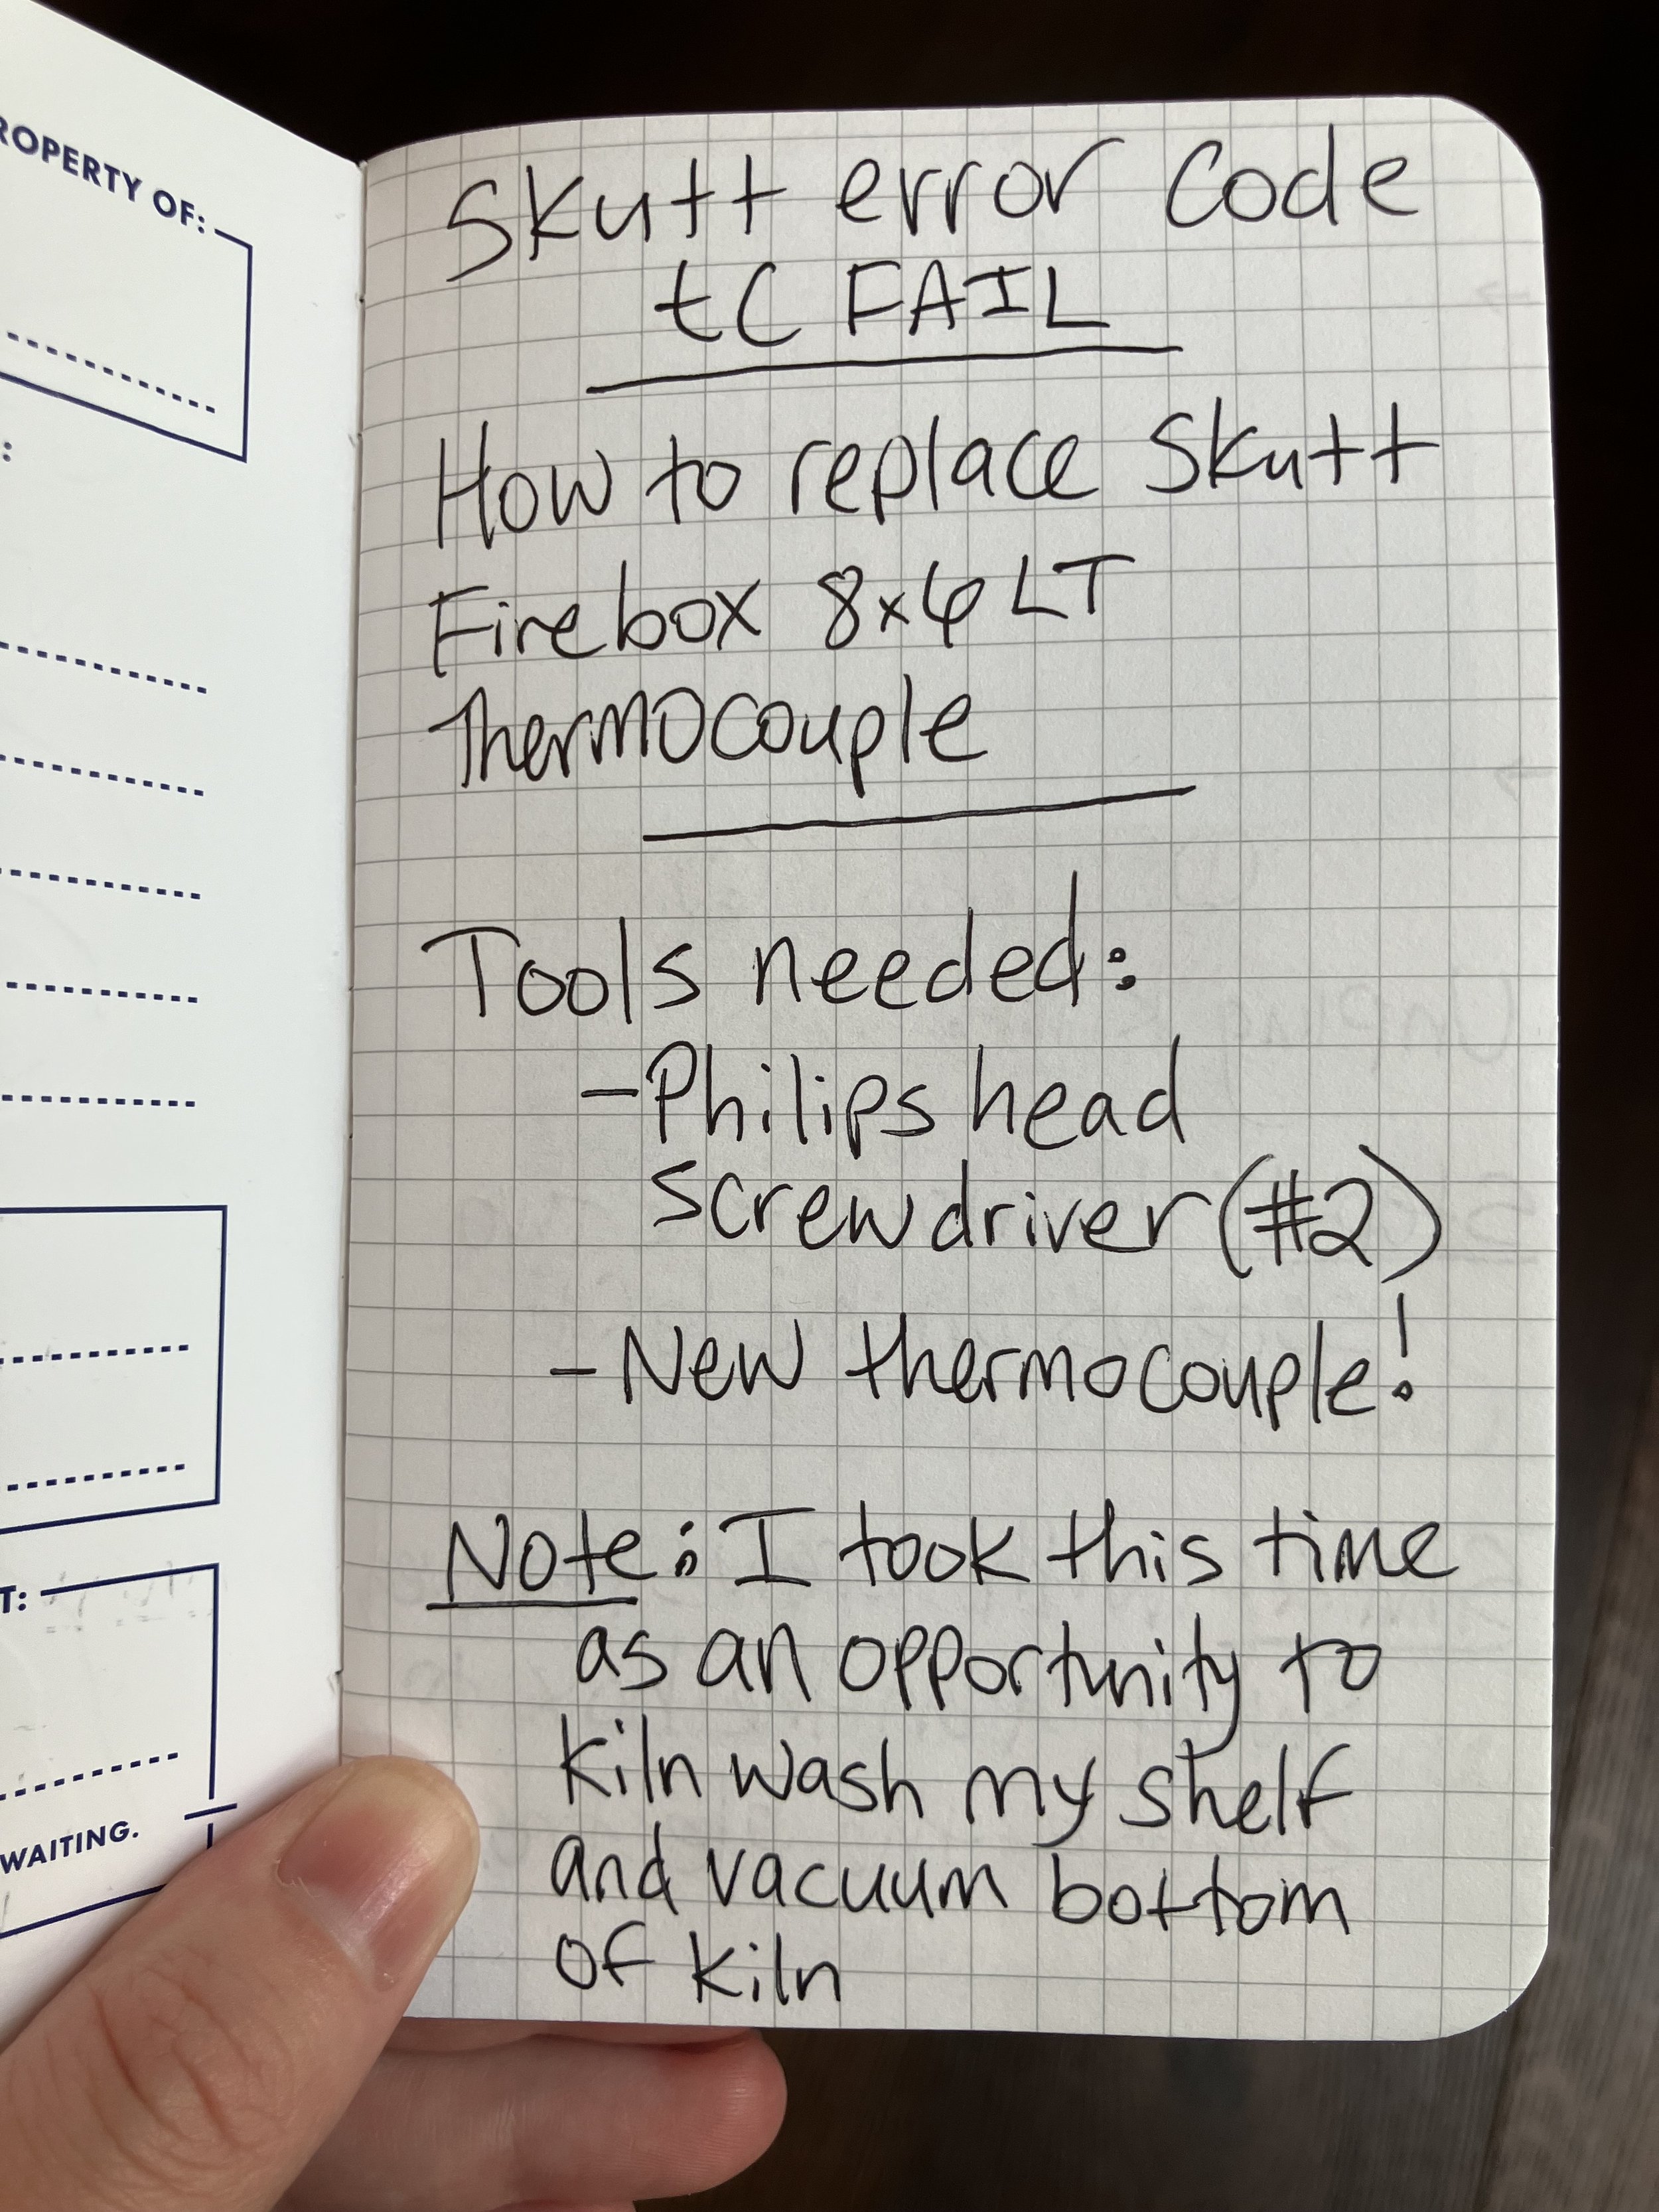 ROPERTY OF:
:
T:
WAITING.
Skutt error code
tC FAIL
How to replace Skutt
Firebox 8x6 LT
Thermocouple
Tools needed:
-Philips head
screwdriver (#2)
-New thermocouple!
Note: I took this time
as an opportunity to
kiln wash my shelf
and vacuum bottom
of kiln